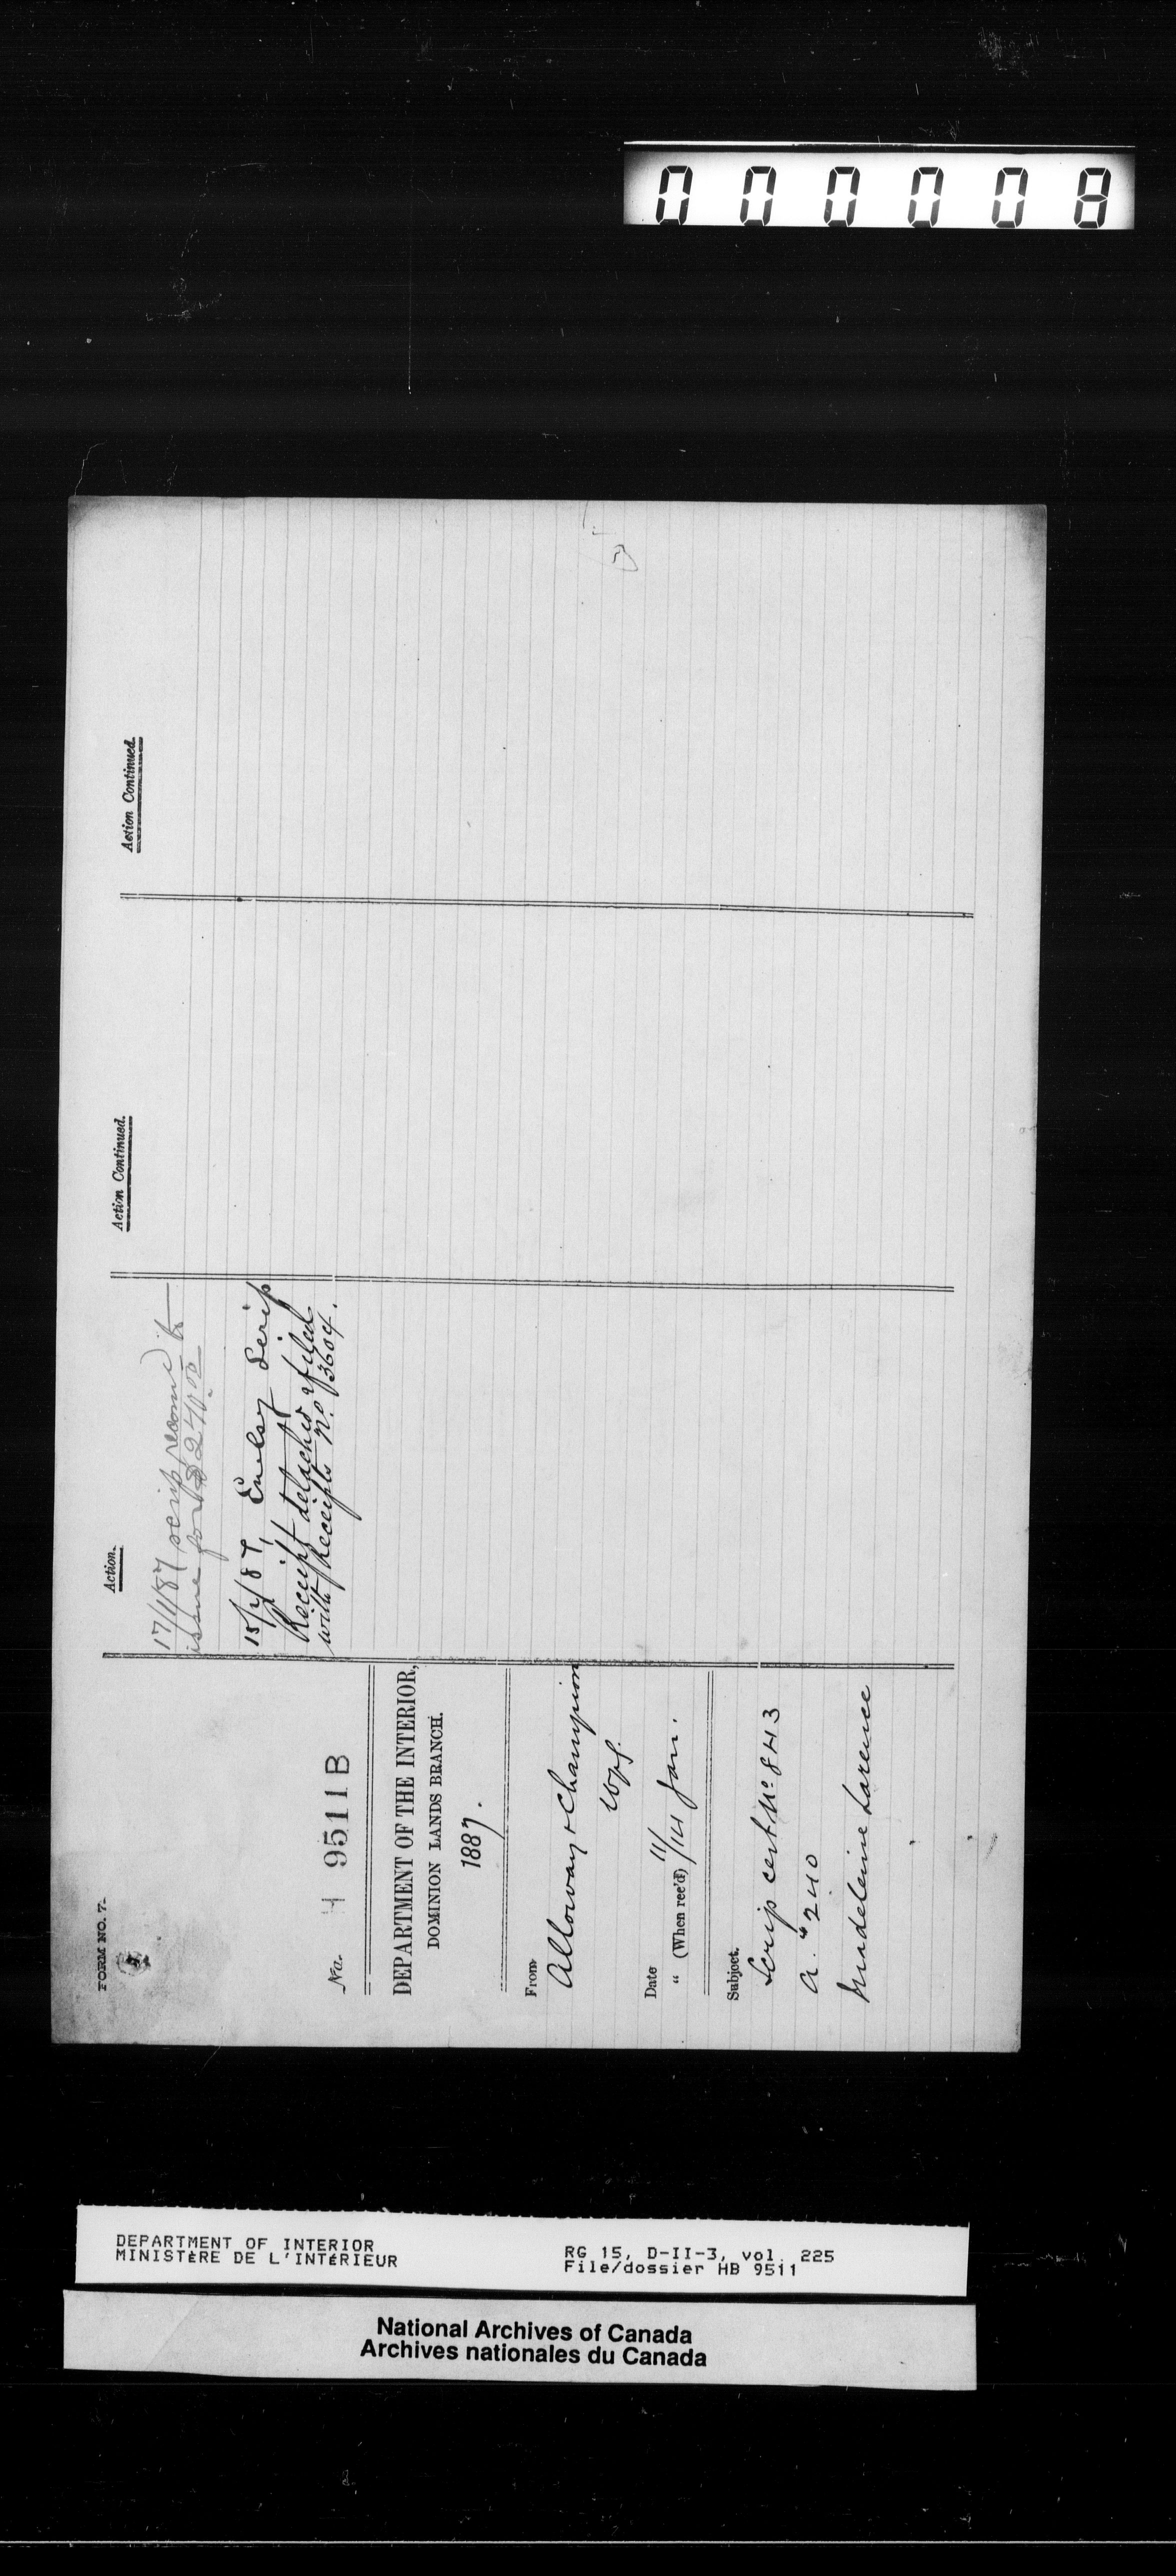 000008
FORM NO. 7.
No. H 9511 B
DEPARTMENT OF THE INTERIOR,
DOMINION LANDS BRANCH.
1887.
From
Alloway & Champion
Wpg.
Date 11/
" (When rec'd) /14 Jan.
Subject.
Scrip cert No 843
a. $240
Madeleine Larence
Action.
17/1/87 scrip recomd to
issue for $240.00
15/2/87, Enclg Scrip
Receipt detached & filed
with Receipts No 13604.
Action Continued.
Action Continued.
DEPARTMENT OF INTERIOR
MINISTÈRE DE L'INTÉRIEUR
RG 15, D-II-3, vol. 225
File/dossier HB 9511
National Archives of Canada
Archives nationales du Canada